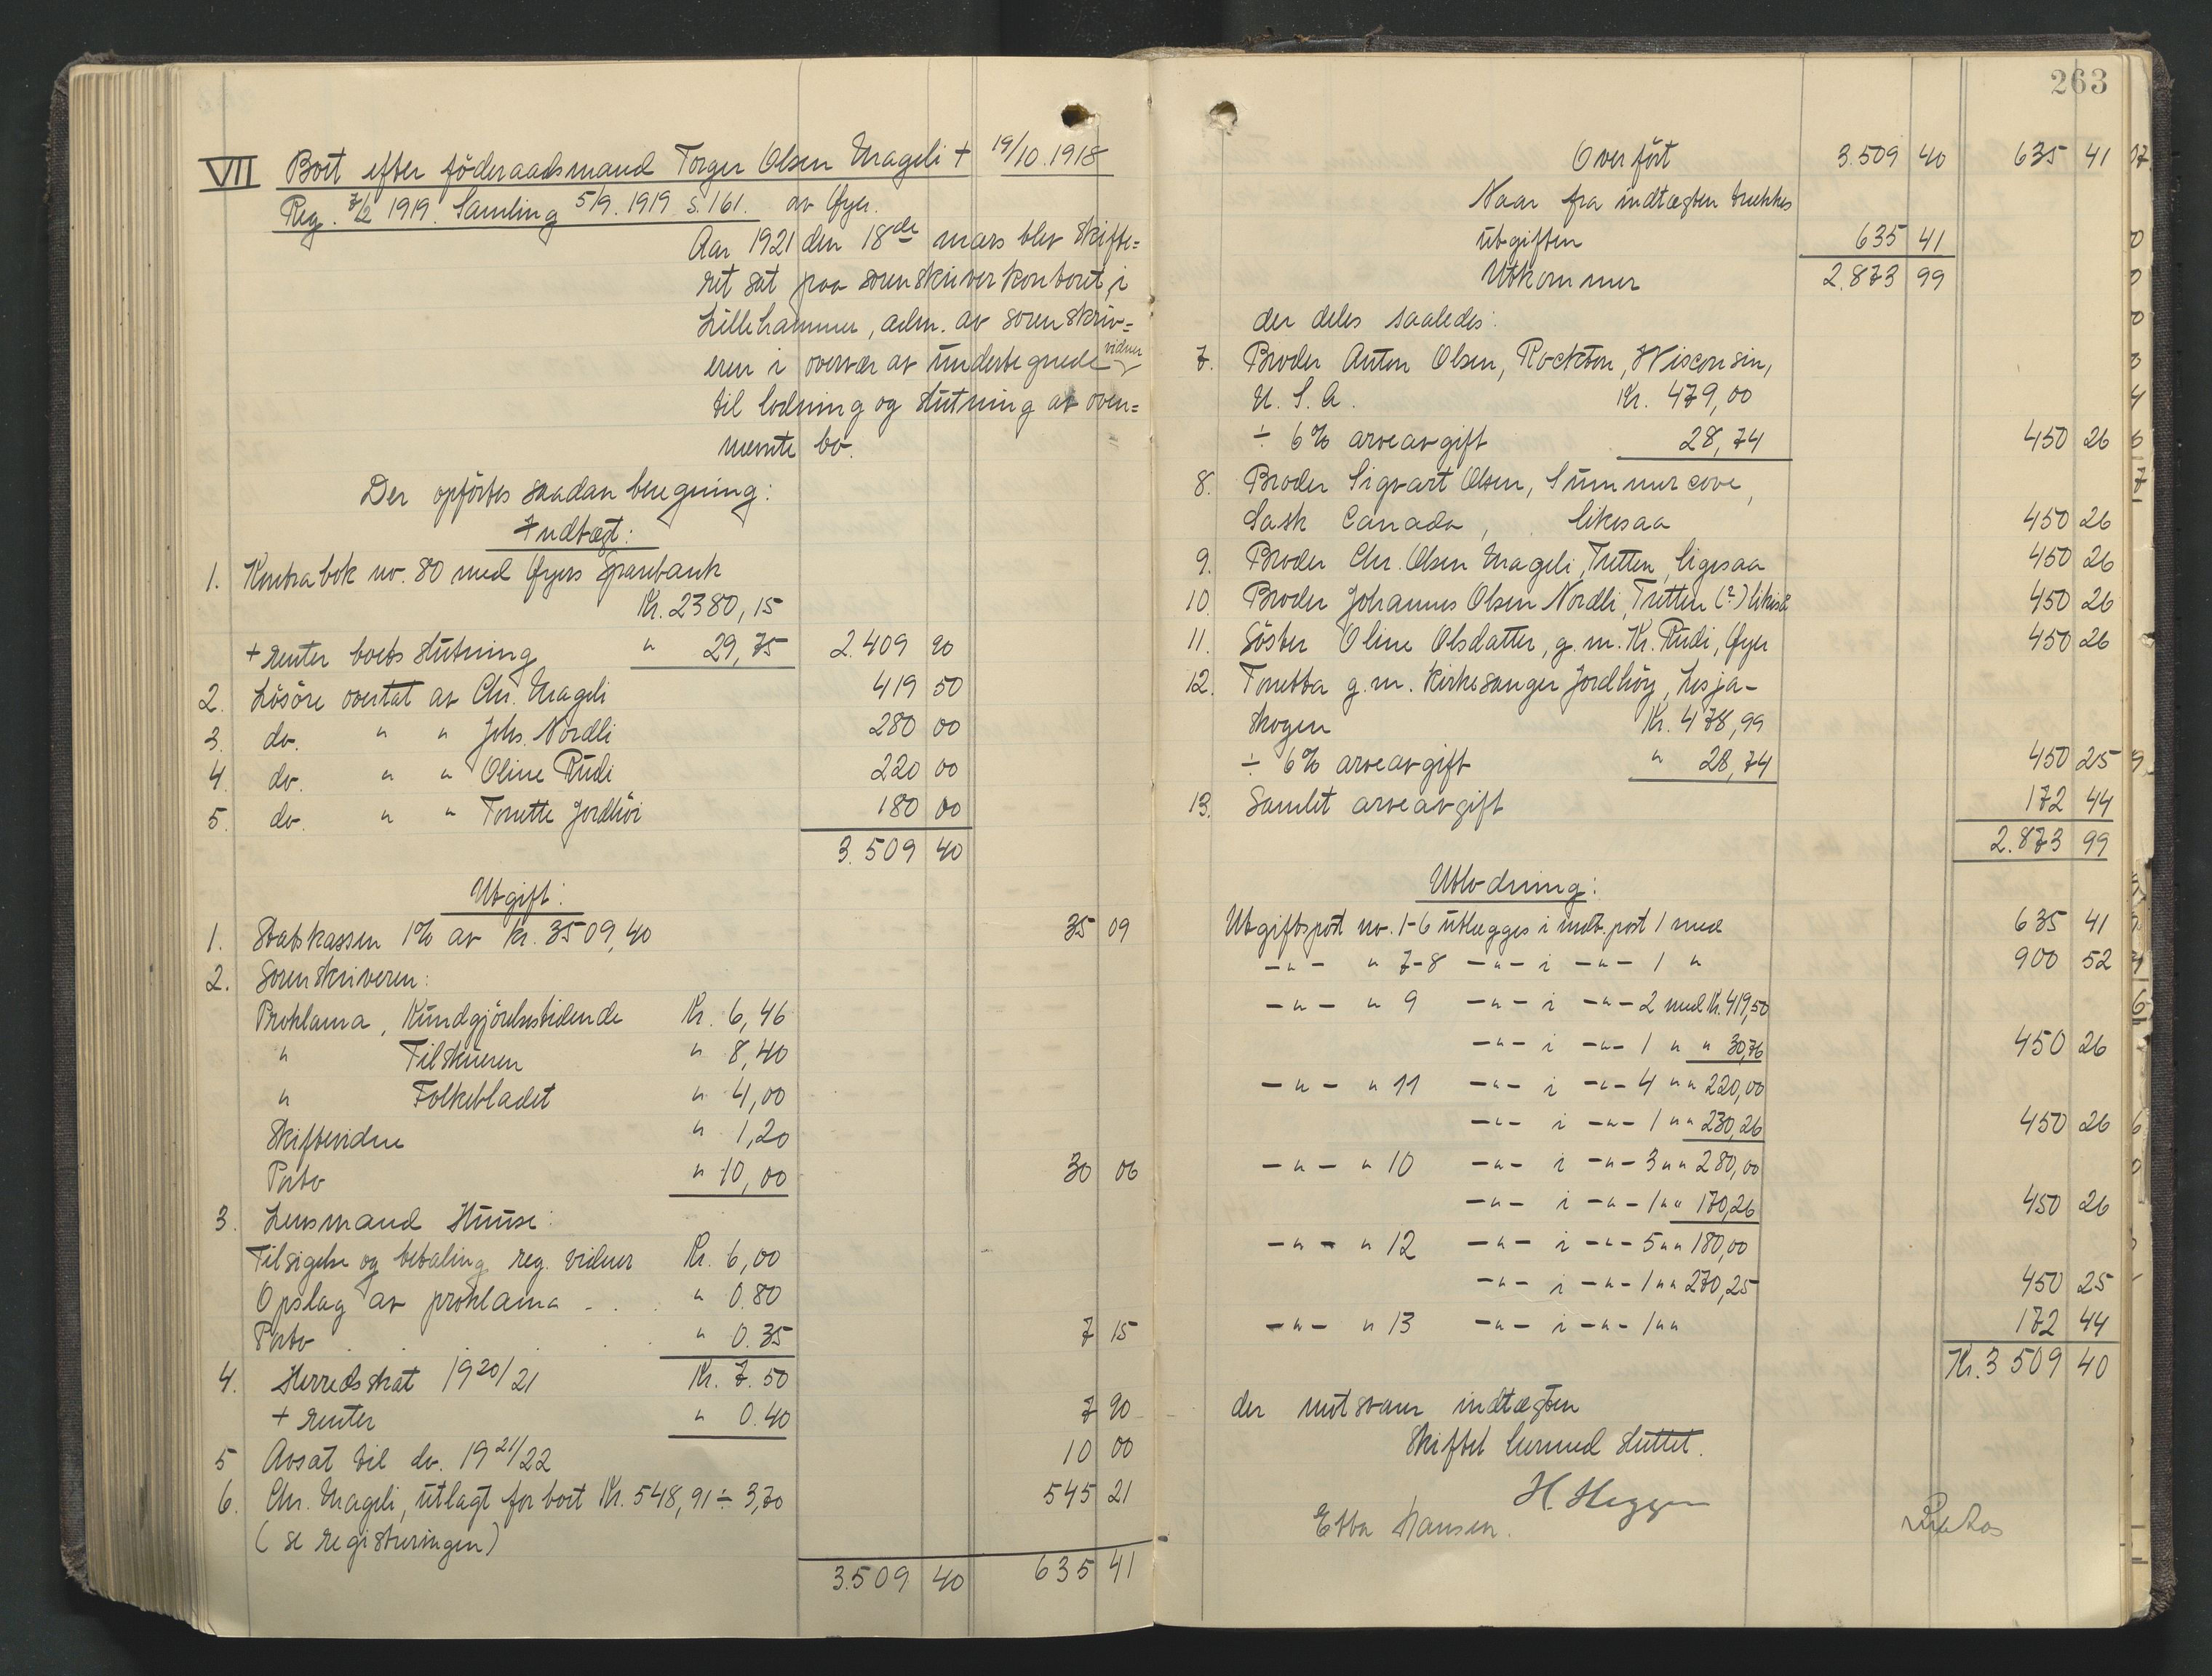 VII Boet efter föderaadsmand Torger Olsen Mageli + 19/10.1918
Reg. 7/2 1919. Samling 5/9. 1919 s. 161. av Øyer.
Aar 1921 den 18de mars blev skifte=
ret sat paa sorenskriverkontoret i
Lillehammer, adm. av sorenskriv=
eren i overvær av undertegnede vidner
til lodning og slutning av oven=
nævnte bo.
Der opförtes saadan beregning:
Indtægt:
1. Kontrabok no. 80 med Øyers sparebank
Kr. 2380,15
+ renter boets slutning " 29,75 2.409 90
2. Lösöre overtat av Chr. Mageli 419 50
3. do. " " Johs. Nordli 280 00
4. do. " " Oline Rudi 220 00
5. do. " " Tonette Jordhöi 180 00
3.509 40
Utgift:
1. Statskassen 1% av kr. 3509,40 35 09
2. Sorenskriveren:
Proklama, Kundgjörelsestidende Kr. 6,46
" Tilskueren " 8,40
" Folkebladet " 4,00
Skiftevidne " 1,20
Porto " 10,00 30 06
3. Lensmand Huuse:
Tilsigelse og betaling reg. vidner Kr. 6,00
Opslag av proklama . . . " 0.80
Porto . . . " 0.35 7 15
4. Herredsskat 1920/21 Kr. 7.50
+ renter " 0.40 7 90
5 Avsat til do. 1921/22 10 00
6. Chr. Mageli, utlagt for boet Kr. 548,91 ÷ 3,70 545 21
(se registreringen)
3.509 40 635 41
263
Overført 3.509 40 635 41
Naar fra indtægten trækkes
utgiften 635 41
Utkommer 2.873 99
der deles saaledes:
7. Broder Anton Olsen, Rockton, Wisconsin,
U. S. A. Kr. 479,00
÷ 6% arveavgift 28,74 450 26
8. Broder Sigvart Olsen, Summercove,
Sask Canada, likesaa 450 26
9. Broder Chr. Olsen Mageli, Tretten, ligesaa 450 26
10. Broder Johannes Olsen Nordli, Tretten (?) likeså 450 26
11. Söster Oline Olsdatter, g. m. Kr. Rudi, Øyer 450 26
12. Tonetta g. m. Kirkesanger Jordhöy, Lesja-
skogen Kr. 478,99
÷ 6% arveavgift " 28,74 450 25
13. Samlet arveavgift 172 44
2.873 99
Utlodning:
Utgiftspost no. 1-6 utlægges i indt. post 1 med 635 41
-"- " 7-8 -"- i -"- 1 " 900 52
-"- " 9 -"- i -"- 2 med Kr. 419,50
-"- i -"- 1 " " 30,76 450 26
-"- " 11 -"- i -"- 4 " " 220,00
-"- i -"- 1 " " 230,26 450 26
-"- " 10 -"- i -"- 3 " " 280,00
-"- i -"- 1 " " 170,26 450 26
-"- " 12 -"- i -"- 5 " " 180,00
-"- i -"- 1 " " 270,25 450 25
-"- " 13 -"- i -"- 1 " " 172 44
Kr. 3 509 40
der motsvarer indtægten
Skiftet hermed sluttet.
H. Heggen
Ebba Hansen.